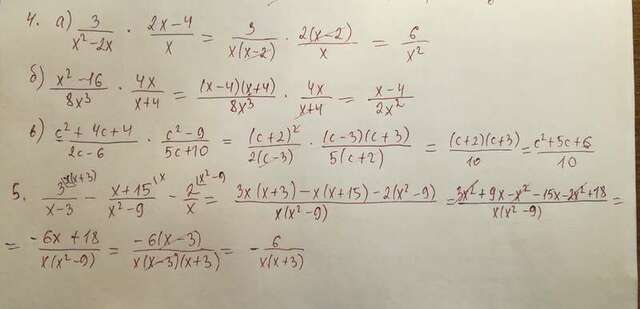 4. а) 3/(x²-2x) · (2x-4)/x = 3/(x(x-2)) · 2(x-2)/x = 6/x²
б) (x²-16)/(8x³) · 4x/(x+4) = (x-4)(x+4)/(8x³) · 4x/(x+4) = (x-4)/(2x²)
в) (c²+4c+4)/(2c-6) · (c²-9)/(5c+10) = (c+2)²/(2(c-3)) · (c-3)(c+3)/(5(c+2)) = (c+2)(c+3)/10 = (c²+5c+6)/10
5. 3^(x(x+3)/(x-3) - (x+15)^(x/(x²-9) - 2^(x²-9)/x = (3x(x+3)-x(x+15)-2(x²-9))/(x(x²-9)) = (3x²+9x-x²-15x-2x²+18)/(x(x²-9)) =
= (-6x+18)/(x(x²-9)) = -6(x-3)/(x(x-3)(x+3)) = -6/(x(x+3))